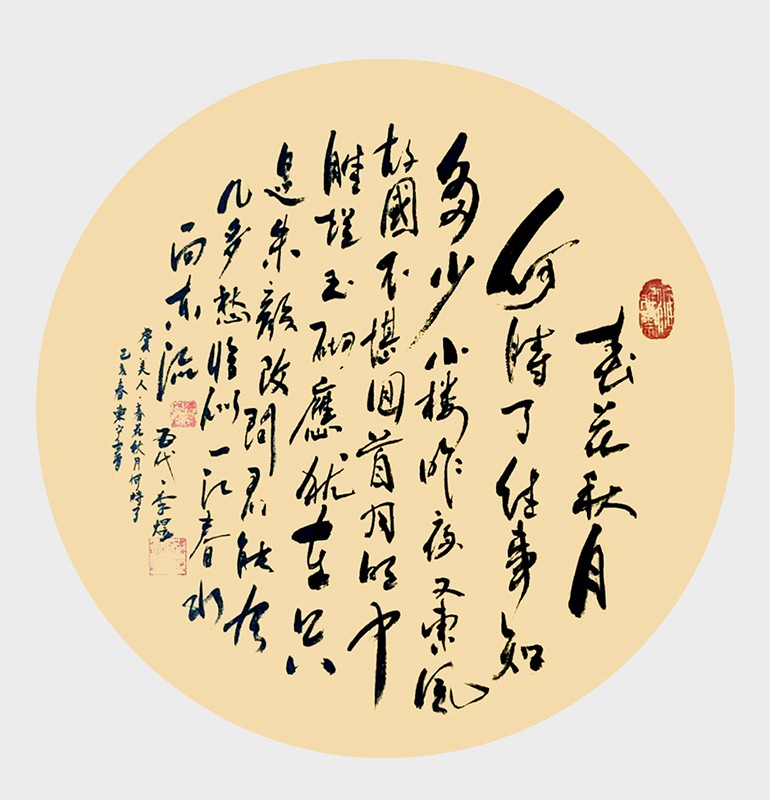 春花秋月
何時了往事知
多少小楼昨夜又東風
故國不堪回首月明中
雕欄玉砌應犹在只
是朱顏改問君能有
几多愁恰似一江春水
向东流
五代·李煜
虞美人·春花秋月何時了
己亥春